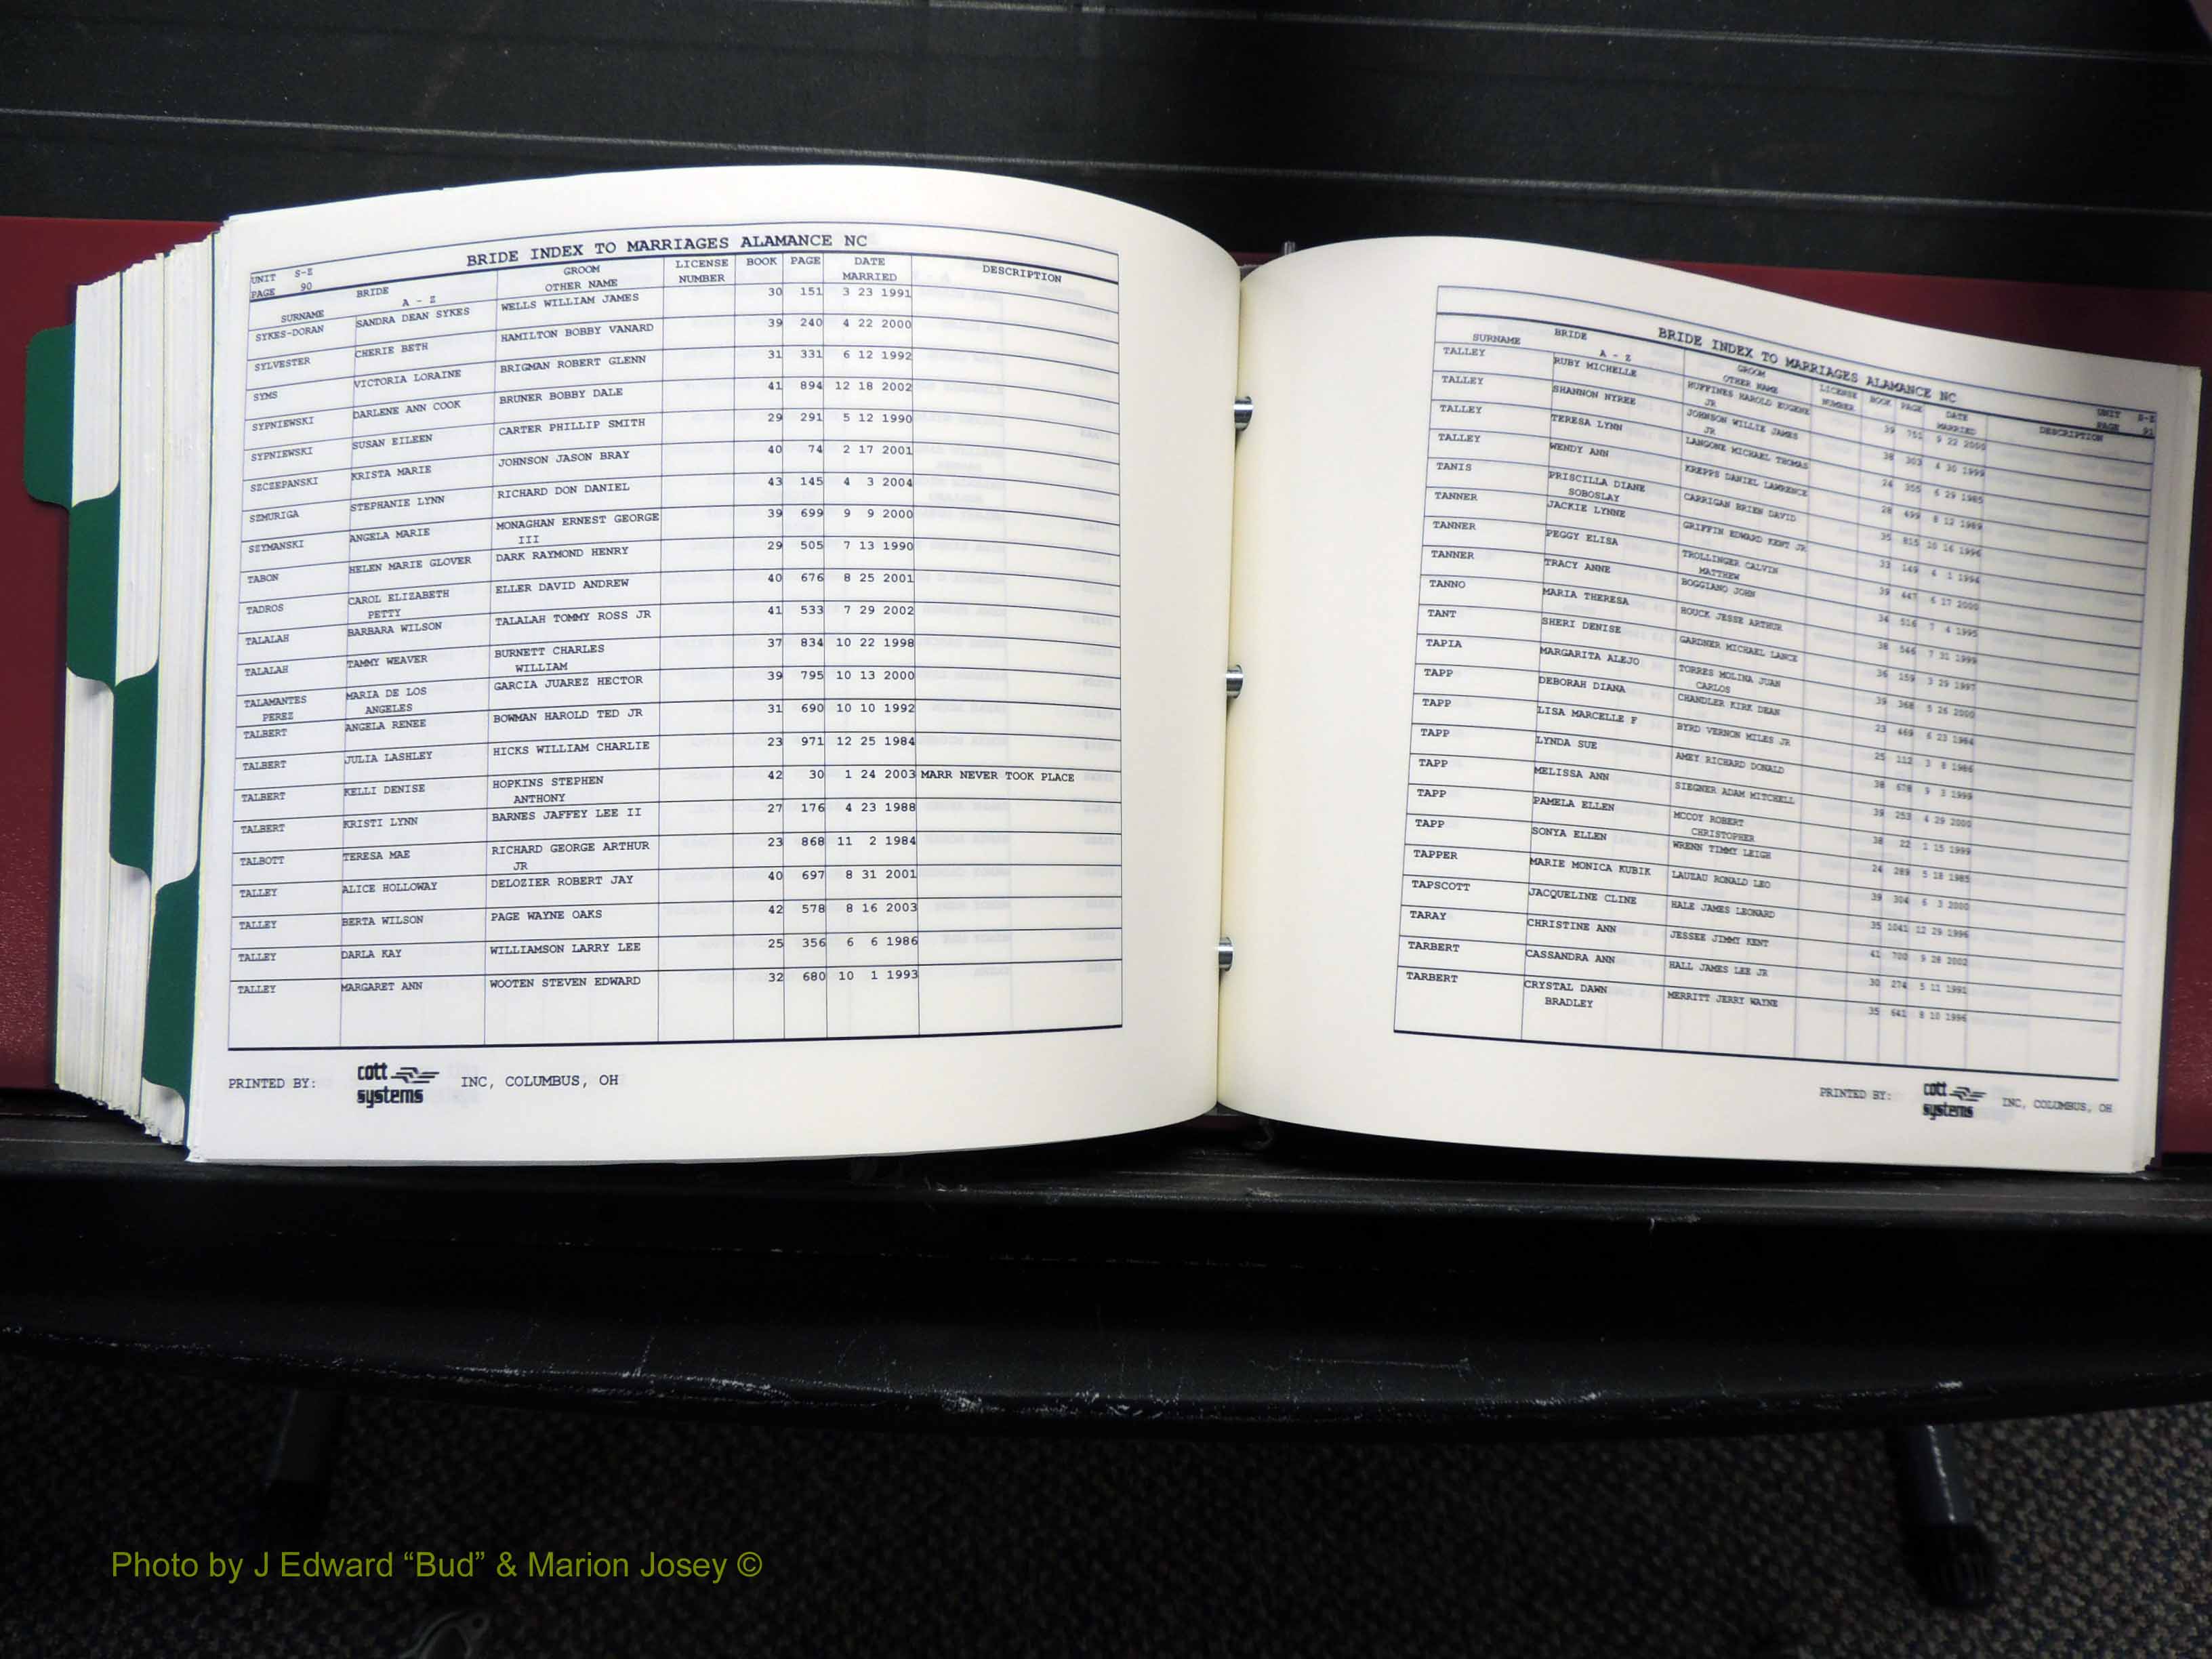 BRIDE INDEX TO MARRIAGES ALAMANCE NC
UNIT S-Z
PAGE 90
BRIDE GROOM LICENSE BOOK PAGE DATE DESCRIPTION
SURNAME A - Z OTHER NAME NUMBER MARRIED
SYKES-DORAN SANDRA DEAN SYKES WELLS WILLIAM JAMES 30 151 3 23 1991
SYLVESTER CHERIE BETH HAMILTON BOBBY VANARD 39 240 4 22 2000
SYMS VICTORIA LORAINE BRIGMAN ROBERT GLENN 31 331 6 12 1992
SYPNIEWSKI DARLENE ANN COOK BRUNER BOBBY DALE 41 894 12 18 2002
SYPNIEWSKI SUSAN EILEEN CARTER PHILLIP SMITH 29 291 5 12 1990
SZCZEPANSKI KRISTA MARIE JOHNSON JASON BRAY 40 74 2 17 2001
SZMURIGA STEPHANIE LYNN RICHARD DON DANIEL 43 145 4 3 2004
SZYMANSKI ANGELA MARIE MONAGHAN ERNEST GEORGE 39 699 9 9 2000
III
TABON HELEN MARIE GLOVER DARK RAYMOND HENRY 29 505 7 13 1990
TADROS CAROL ELIZABETH ELLER DAVID ANDREW 40 676 8 25 2001
PETTY
TALALAH BARBARA WILSON TALALAH TOMMY ROSS JR 41 533 7 29 2002
TALALAH TAMMY WEAVER BURNETT CHARLES 37 834 10 22 1998
WILLIAM
TALAMANTES MARIA DE LOS GARCIA JUAREZ HECTOR 39 795 10 13 2000
PEREZ ANGELES
TALBERT ANGELA RENEE BOWMAN HAROLD TED JR 31 690 10 10 1992
TALBERT JULIA LASHLEY HICKS WILLIAM CHARLIE 23 971 12 25 1984
TALBERT KELLI DENISE HOPKINS STEPHEN 42 30 1 24 2003 MARR NEVER TOOK PLACE
ANTHONY
TALBERT KRISTI LYNN BARNES JAFFEY LEE II 27 176 4 23 1988
TALBOTT TERESA MAE RICHARD GEORGE ARTHUR 23 868 11 2 1984
JR
TALLEY ALICE HOLLOWAY DELOZIER ROBERT JAY 40 697 8 31 2001
TALLEY BERTA WILSON PAGE WAYNE OAKS 42 578 8 16 2003
TALLEY DARLA KAY WILLIAMSON LARRY LEE 25 356 6 6 1986
TALLEY MARGARET ANN WOOTEN STEVEN EDWARD 32 680 10 1 1993
PRINTED BY: cott systems INC, COLUMBUS, OH
BRIDE INDEX TO MARRIAGES ALAMANCE NC
UNIT S-Z
PAGE 91
BRIDE GROOM LICENSE BOOK PAGE DATE DESCRIPTION
SURNAME A - Z OTHER NAME NUMBER MARRIED
TALLEY RUBY MICHELLE HUFFINES HAROLD EUGENE 39 751 9 22 2000
JR
TALLEY SHANNON NYREE JOHNSON WILLIE JAMES 38 303 4 30 1999
JR
TALLEY TERESA LYNN LANGONE MICHAEL THOMAS 24 355 6 29 1985
TALLEY WENDY ANN KREPPS DANIEL LAWRENCE 28 499 8 12 1989
TANIS PRISCILLA DIANE CARRIGAN BRIEN DAVID 35 815 10 16 1996
SOBOSLAY
TANNER JACKIE LYNNE GRIFFIN EDWARD KENT JR 33 149 6 1 1994
TANNER PEGGY ELISA TROLLINGER CALVIN 39 447 6 17 2000
MATTHEW
TANNER TRACY ANNE BOGGIANO JOHN 34 516 7 4 1995
TANNO MARIA THERESA HOUCK JESSE ARTHUR 38 546 7 31 1999
TANT SHERI DENISE GARDNER MICHAEL LANCE 36 159 3 29 1997
TAPIA MARGARITA ALEJO TORRES MOLINA JUAN 39 368 5 26 2000
CARLOS
TAPP DEBORAH DIANA CHANDLER KIRK DEAN 23 469 6 23 1984
TAPP LISA MARCELLE F BYRD VERNON MILES JR 25 112 3 8 1986
TAPP LYNDA SUE AMEY RICHARD DONALD 38 678 9 3 1999
TAPP MELISSA ANN SIEGNER ADAM MITCHELL 39 253 4 29 2000
TAPP PAMELA ELLEN MCCOY ROBERT 38 22 1 15 1999
CHRISTOPHER
TAPP SONYA ELLEN WRENN TIMMY LEIGH 24 289 5 18 1985
TAPPER MARIE MONICA KUBIK LAUZAU RONALD LEO 39 304 6 3 2000
TAPSCOTT JACQUELINE CLINE HALE JAMES LEONARD 35 1041 12 29 1996
TARAY CHRISTINE ANN JESSEE JIMMY KENT 41 700 9 28 2002
TARBERT CASSANDRA ANN HALL JAMES LEE JR 30 274 5 11 1991
TARBERT CRYSTAL DAWN MERRITT JERRY WAYNE 35 641 8 10 1996
BRADLEY
PRINTED BY: cott systems INC, COLUMBUS, OH
Photo by J Edward “Bud” & Marion Josey ©